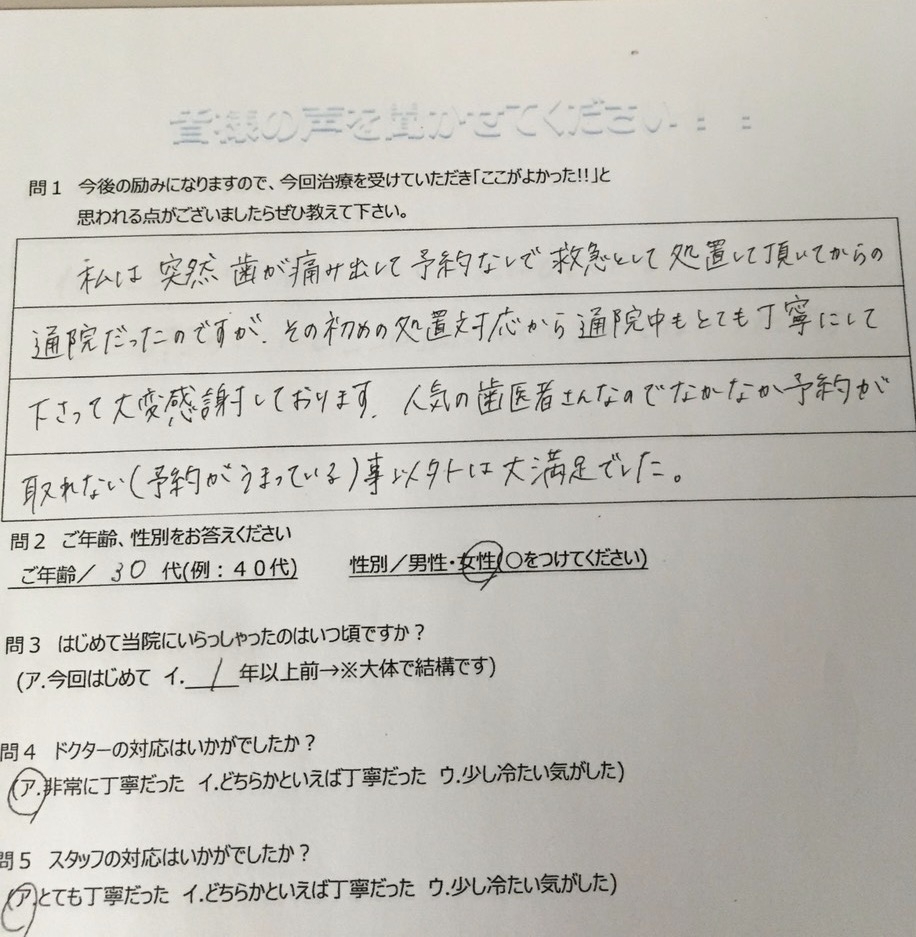 皆様の声を聞かせてください！！
問1 今後の励みになりますので、今回治療を受けていただき「ここがよかった!!」と
思われる点がございましたらぜひ教えて下さい。
私は突然歯が痛み出して予約なしで救急として処置して頂いてからの
通院だったのですが、その初めの処置対応から通院中もとても丁寧にして
下さって大変感謝しております。人気の歯医者さんなのでなかなか予約が
取れない(予約がうまっている)事以外は大満足でした。
問2 ご年齢、性別をお答えください
ご年齢／ 30 代(例：40代) 性別／男性・女性(○をつけてください)
問3 はじめて当院にいらっしゃったのはいつ頃ですか？
(ア.今回はじめて イ. 1 年以上前→※大体で結構です)
問4 ドクターの対応はいかがでしたか？
(ア.非常に丁寧だった イ.どちらかといえば丁寧だった ウ.少し冷たい気がした)
問5 スタッフの対応はいかがでしたか？
(ア.とても丁寧だった イ.どちらかといえば丁寧だった ウ.少し冷たい気がした)